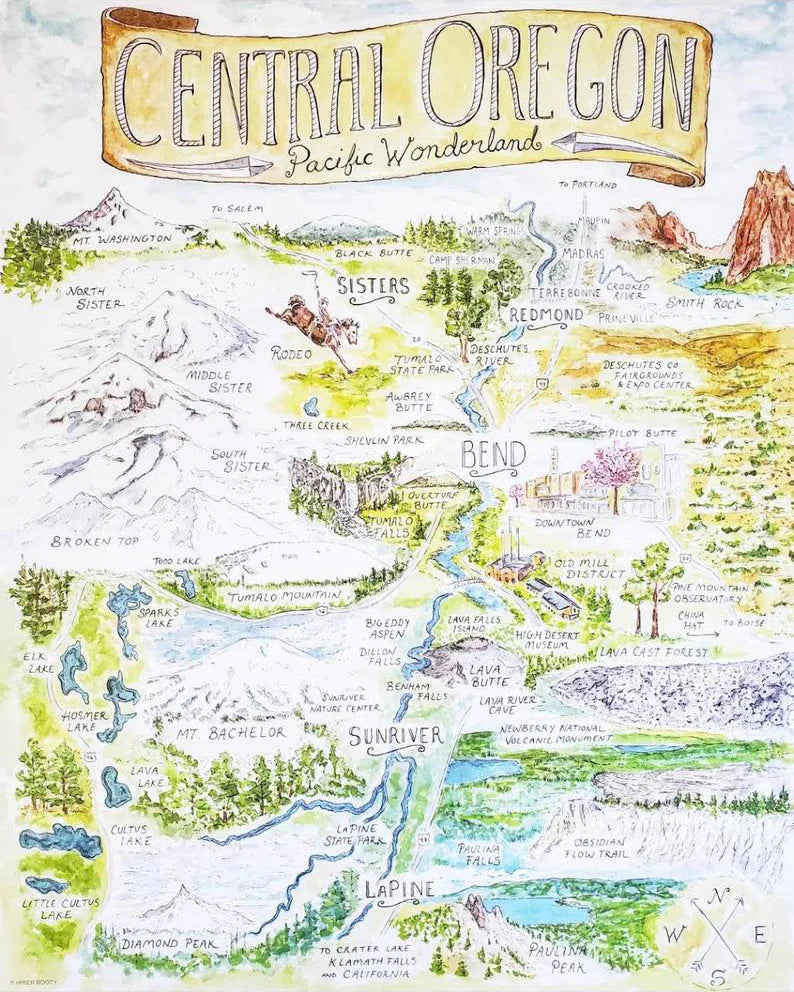 CENTRAL OREGON
Pacific Wonderland
TO PORTLAND
TO SALEM
MT. WASHINGTON
BLACK BUTTE
WARM SPRINGS
MAUPIN
CAMP SHERMAN
MADRAS
NORTH
SISTER
SISTERS
TERREBONNE
CROOKED
RIVER
SMITH ROCK
REDMOND
PRINEVILLE
RODEO
20
MIDDLE
SISTER
TUMALO
STATE PARK
DESCHUTES
RIVER
DESCHUTES CO.
FAIRGROUNDS
& EXPO CENTER
97
AWBREY
BUTTE
THREE CREEK
SHEVLIN PARK
PILOT BUTTE
BEND
SOUTH
SISTER
OVERTURF
BUTTE
TUMALO
FALLS
DOWNTOWN
BEND
BROKEN TOP
TODD LAKE
OLD MILL
DISTRICT
20
TUMALO MOUNTAIN
PINE MOUNTAIN
OBSERVATORY
SPARKS
LAKE
CHINA
HAT
TO BOISE
BIG EDDY
ASPEN
LAVA FALLS
ISLAND
HIGH DESERT
MUSEUM
ELK
LAKE
DILLON
FALLS
LAVA CAST FOREST
LAVA
BUTTE
BENHAM
FALLS
SUNRIVER
NATURE CENTER
LAVA RIVER
CAVE
HOSMER
LAKE
MT. BACHELOR
SUNRIVER
NEWBERRY NATIONAL
VOLCANIC MONUMENT
LAVA
LAKE
CULTUS
LAKE
LAPINE
STATE PARK
97
PAULINA
FALLS
OBSIDIAN
FLOW TRAIL
LAPINE
LITTLE CULTUS
LAKE
N
W
E
S
DIAMOND PEAK
TO CRATER LAKE
KLAMATH FALLS
AND CALIFORNIA
PAULINA
PEAK
© HIKER BOOTY